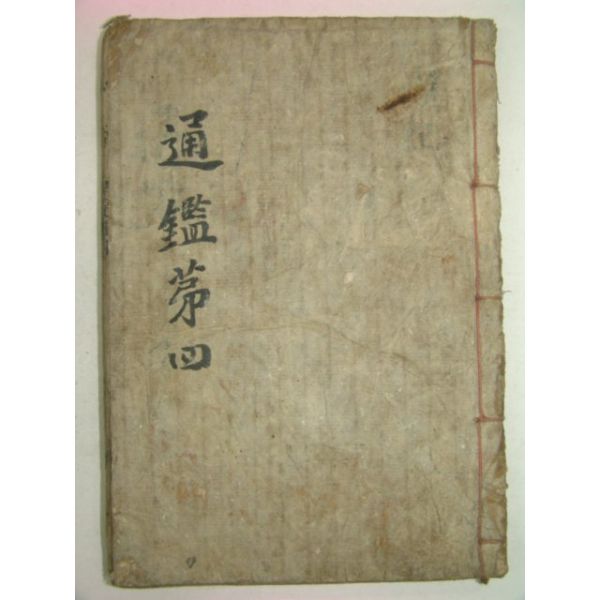 通鑑第四